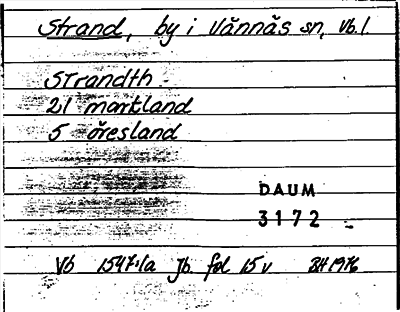 Strand, by i Vännäs sn, Vb.l.
Strandth
21 markland
5 öresland
DAUM
3172
Vb 1547:1a Jb fol 15v BH 1976